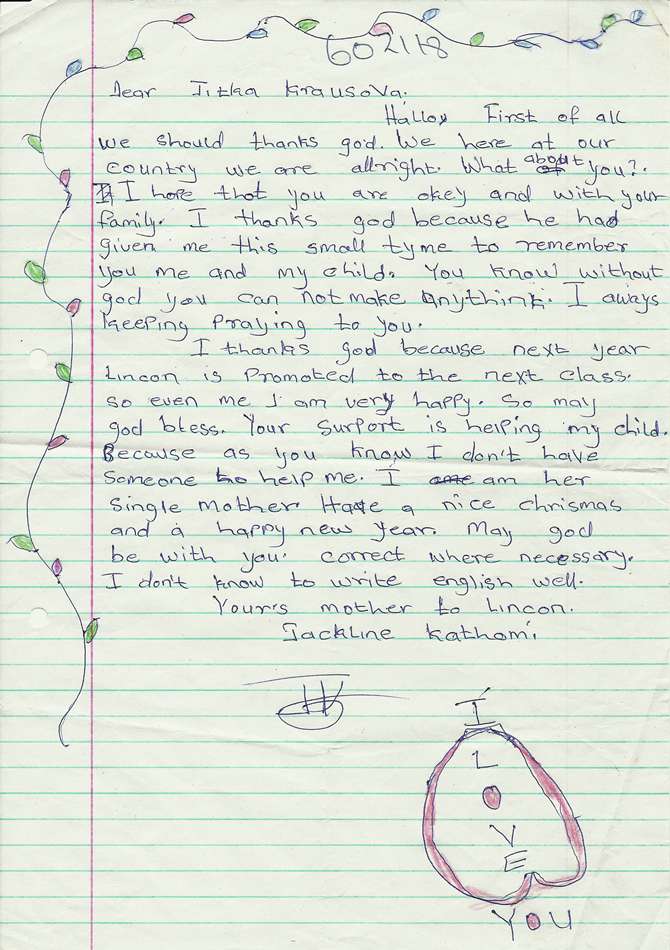 602118
Dear Jitka Krausova.
Hallo, First of all
we should thanks god. We here at our
country we are allright. What about you?.
I hope that you are okey and with your
family. I thanks god because he had
given me this small tyme to remember
you me and my child. You know without
god you can not make anythink. I aways
keeping praying to you.
I thanks god because next year
Lincon is promoted to the next class.
so even me I am very happy. So may
god bless. Your surport is helping my child.
Because as you know I don't have
someone to help me. I am her
single mother. Have a nice chrismas
and a happy new year. May god
be with you. correct where necessary.
I don't know to write english well.
Your's mother to Lincon.
Jackline Kathomi
I
L
O
V
E
YOU